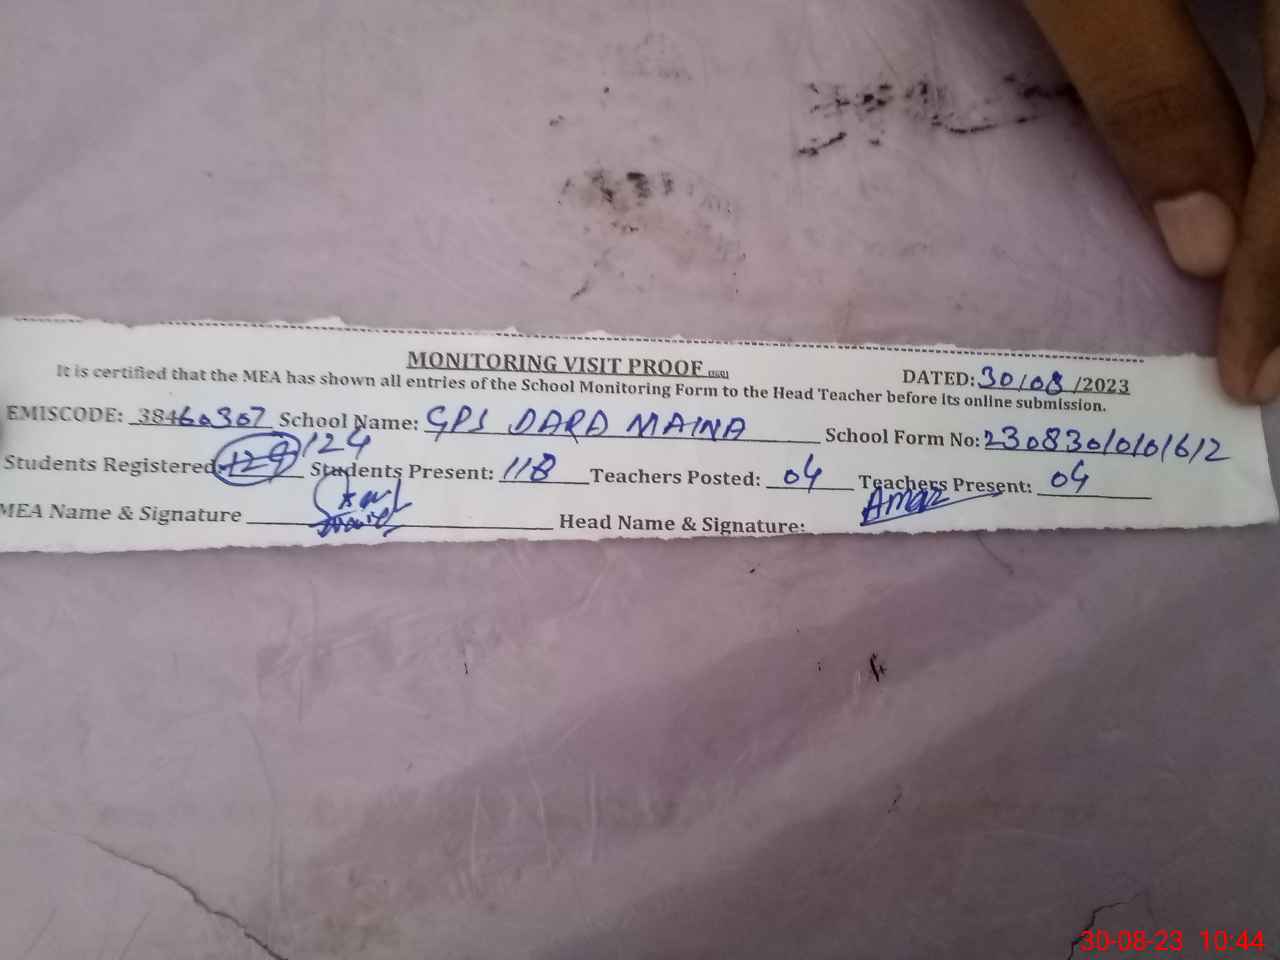 MONITORING VISIT PROOF DATED: 30/08/2023
It is certified that the MEA has shown all entries of the School Monitoring Form to the Head Teacher before its online submission.
EMISCODE: 38460307 School Name: GPS DARA MAINA School Form No: 23083010101612
Students Registered 129 124 Students Present: 118 Teachers Posted: 04 Teachers Present: 04
MEA Name & Signature Head Name & Signature: Amar
30-08-23 10:44